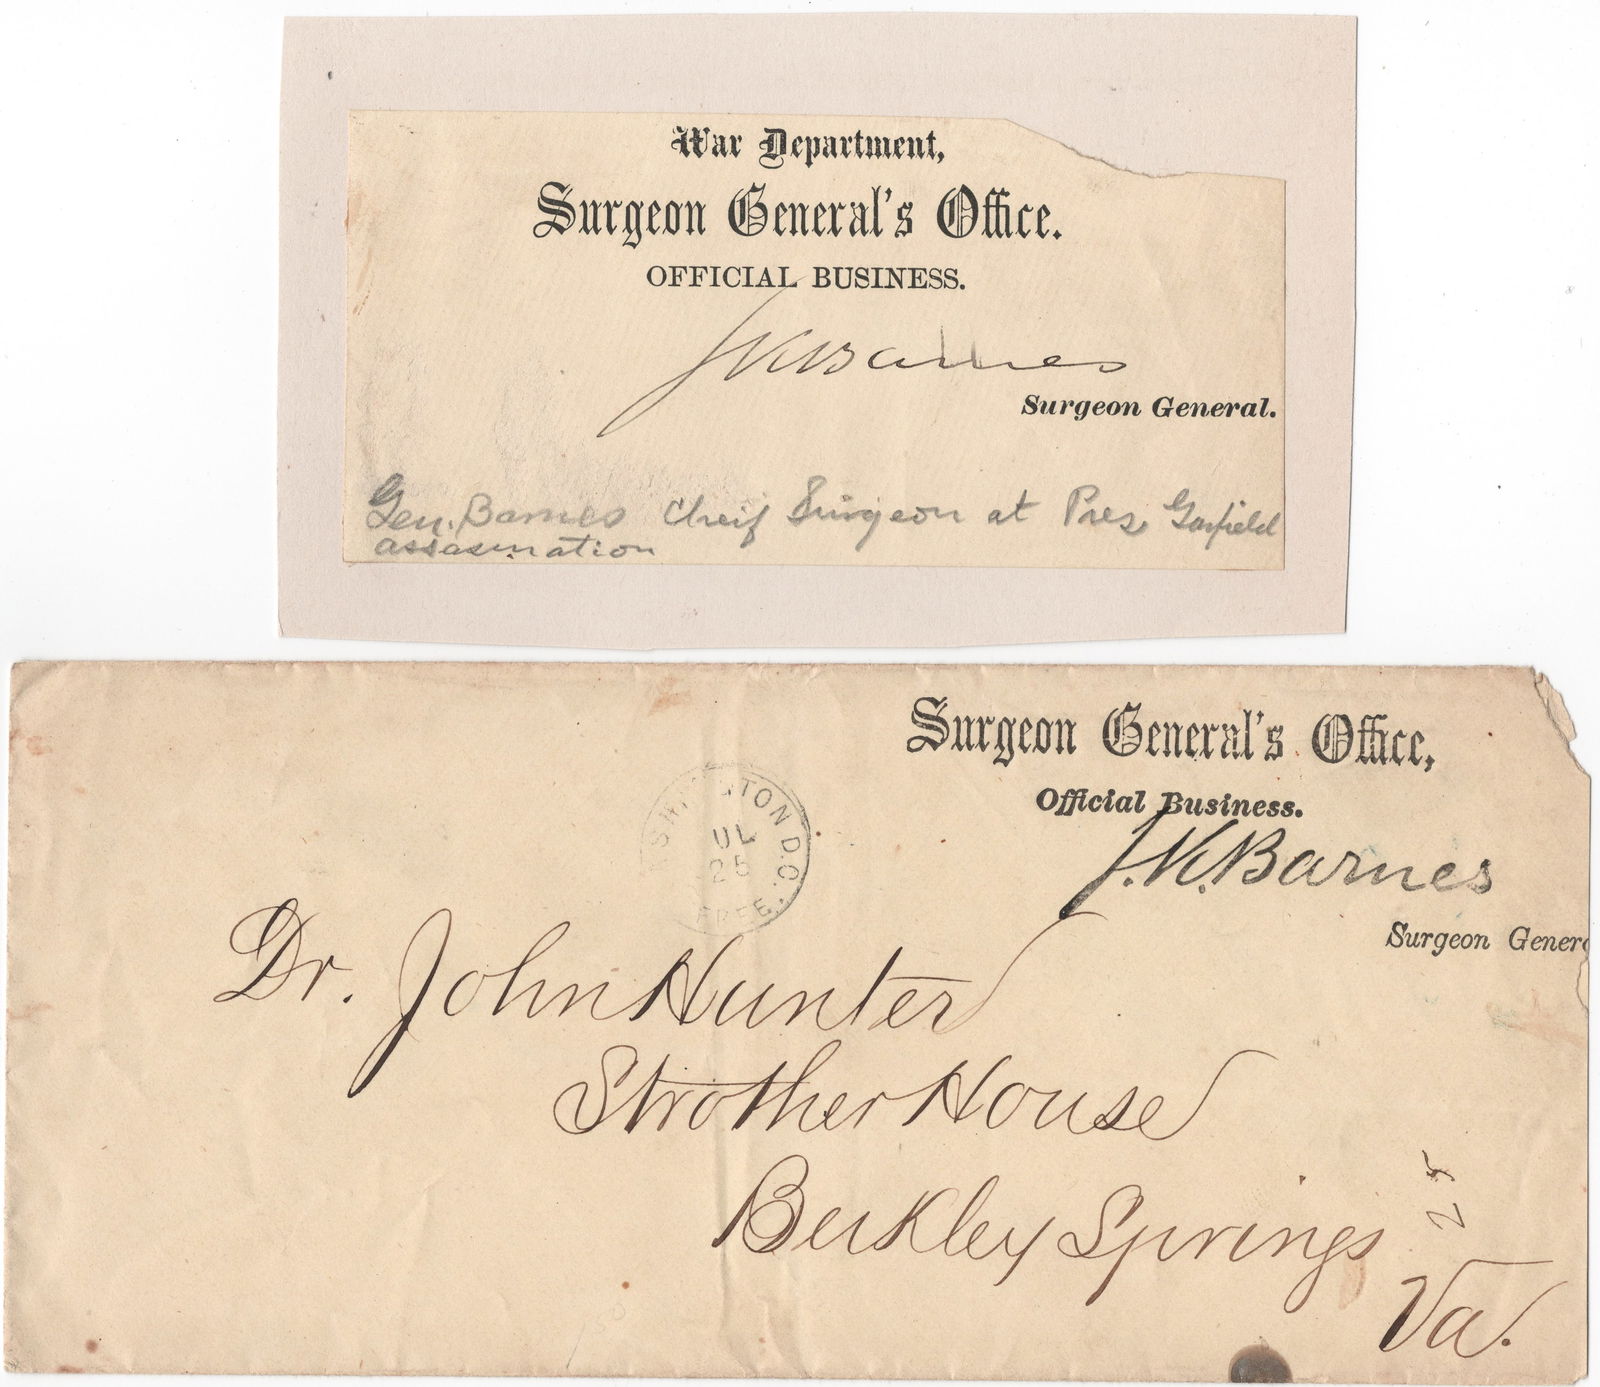 War Department,
Surgeon General's Office.
OFFICIAL BUSINESS.
JKBarnes
Surgeon General.
Gen. Barnes Cheif Surgeon at Pres. Garfield
assasination
Surgeon General's Office,
Official Business.
J.K.Barnes
Surgeon Genera
SHINGTON D.C.
UL
25
FREE.
Dr. John Hunter
Strother House
Berkley Springs
25
Va.